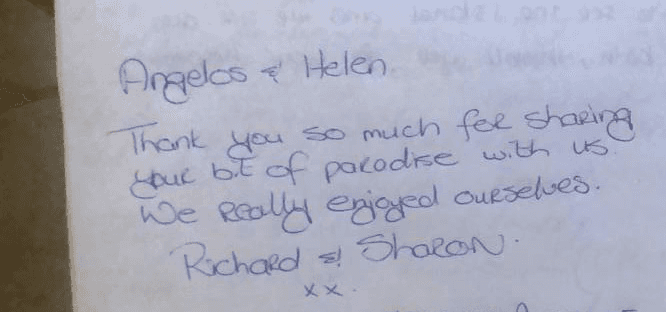 Angelos & Helen.
Thank you so much for sharing
your bit of paradise with us.
We really enjoyed ourselves.
Richard & Sharon.
xx.